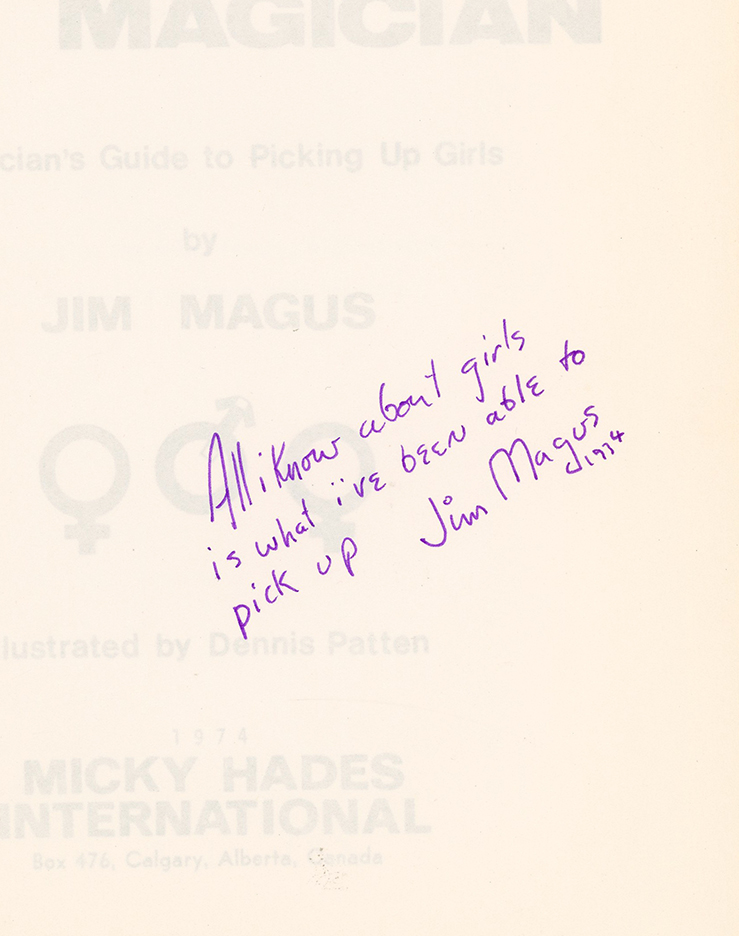 MAGICIAN
cian's Guide to Picking Up Girls
by
JIM MAGUS
All i Know about girls
is what i've been able to
pick up Jim Magus
1974
lustrated by Dennis Patten
1974
MICKY HADES
INTERNATIONAL
Box 476, Calgary, Alberta, Canada